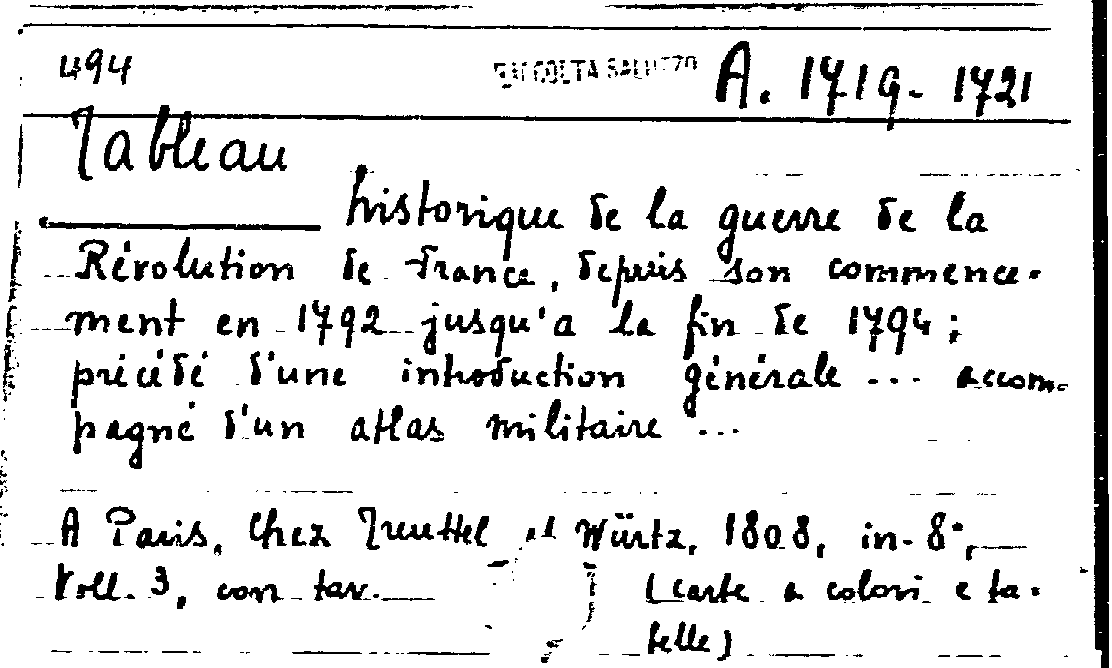 494 RACCOLTA SALUZZO A. 1719-1721
Tableau
historique de la guerre de la
Révolution de France, depuis son commence-
ment en 1792 jusqu'a la fin de 1794;
précédé d'une introduction générale ... accom-
pagné d'un atlas militaire ...
A Paris, Chez Treuttel et Würtz, 1808, in-8°,
Voll. 3, con tav. (carte a colori e ta-
belle)